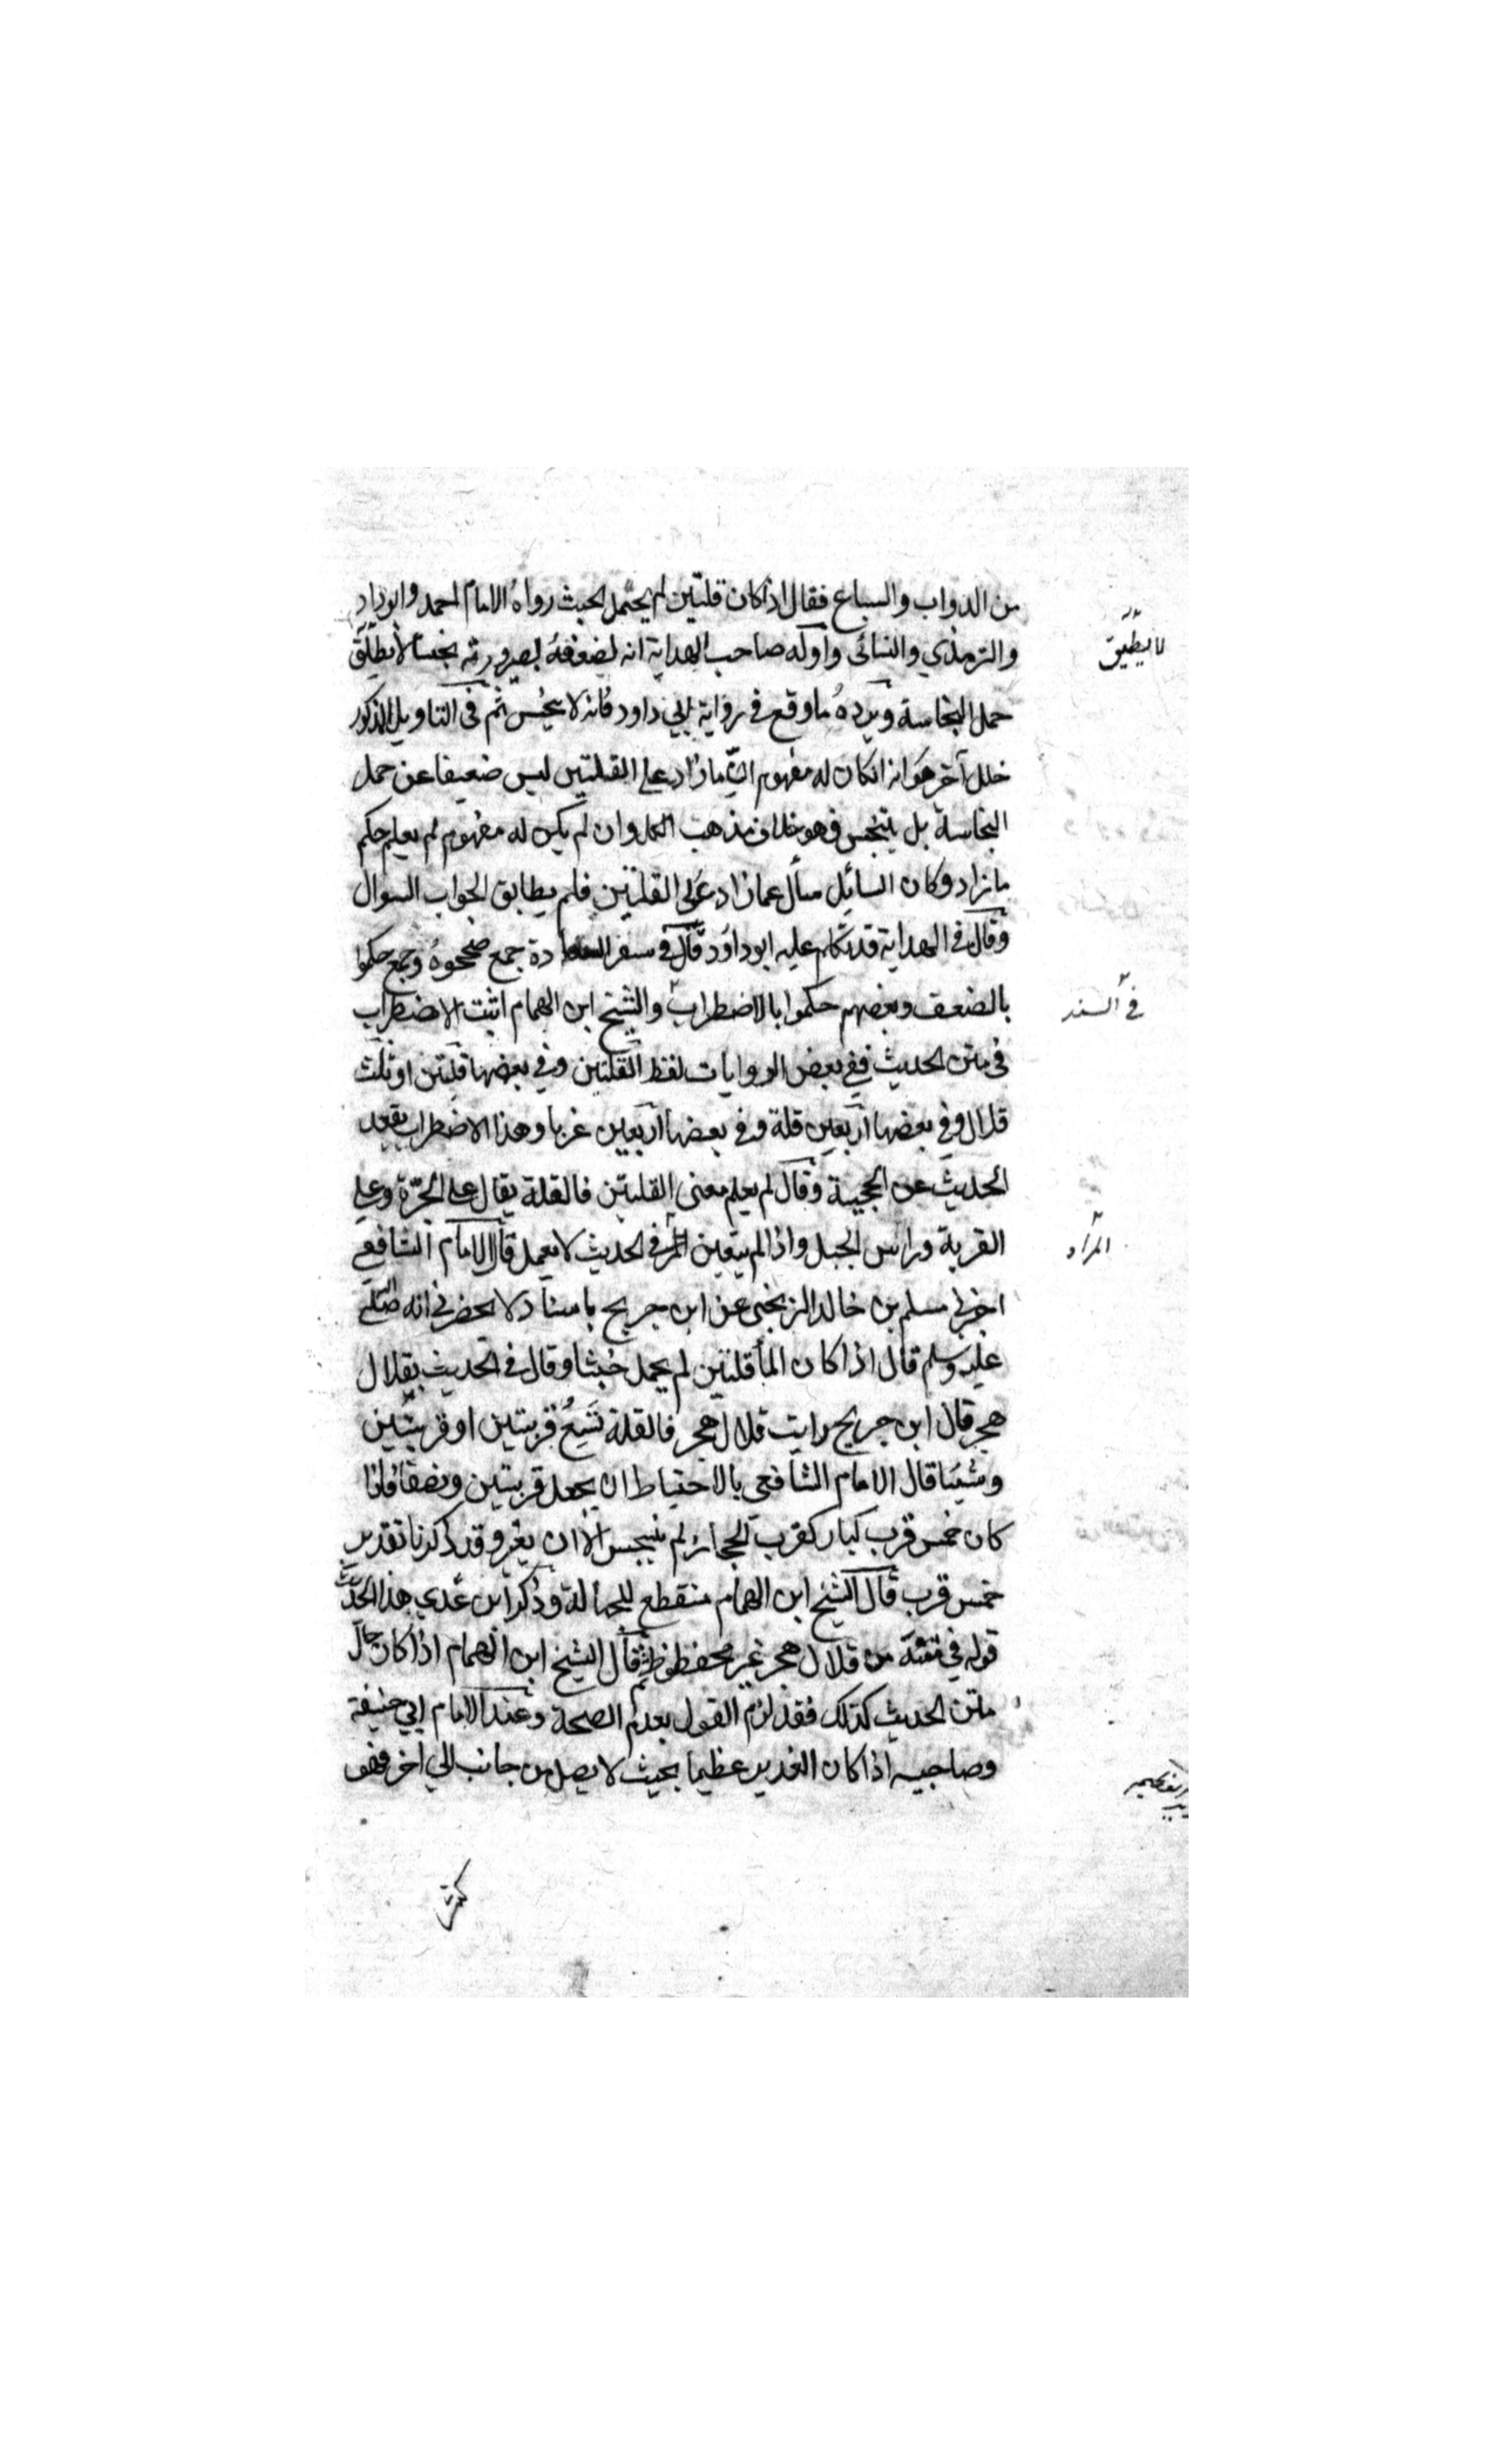 من الدواب والسباع فقال اذا كان قلتين لم يحتمل الخبث رواه الامام احمد وابوداود
والترمذي والنسائى واوله صاحب الهداية انه لضعفه بصيرورته نجسا لا يطيق
لا يطيق
حمل النجاسة ويرده ما وقع في رواية ابي داود فانه لا ينجس ثم فى التاويل المذكور
خلل آخر هو انه ان كان له مفهوم ان ما زاد على القلتين ليس ضعيفا عن حمل
النجاسة بل يتنجس فهو خلاف مذهب الكل وان لم يكن له مفهوم لم يعلم حكم
ما زاد وكان السائل سأل عما زاد على القلتين فلم يطابق الجواب السوال
وقال في الهداية قد تكلم عليه ابو داود قال في سفر السعادة جمع صححوه وجمع حكموا
بالضعف وبعضهم حكموا بالاضطراب والشيخ ابن الهمام اثبت الاضطراب
في السند
فى متن الحديث ففي بعض الروايات لفظ القلتين وفي بعضها قلتين او ثلث
قلال وفي بعضها اربعين قلة وفي بعضها اربعين غربا وهذا الاضطراب يقعد
الحديث عن الحجية وقال لم يعلم معنى القلتين فالقلة يقال على الجرة وعلى
القربة وراس الجبل واذا لم يتعين في الحديث لا يعمل قال الامام الشافعي
المراد
اخبرني مسلم بن خالد الزنجى عن ابن جريج باسناد لا يحضرني انه صلى الله
عليه وسلم قال اذا كان الماء قلتين لم يحمل خبثا وقال في الحديث بقلال
هجر قال ابن جريج رايت قلال هجر فالقلة تسع قربتين او قربتين
وشيئا قال الامام الشافعى بالاحتياط ان يجعل قربتين ونصفا فاذا
كان خمس قرب كبار كقرب الحجاز لم ينجس الا ان يغير وقد ذكرنا تقدير
خمس قرب قال الشيخ ابن الهمام منقطع للجهالة وذكر ابن عدي هذا الحديث
قوله في متنه من قلال هجر غير محفوظ ثم قال الشيخ ابن الهمام اذا كان حال
متن الحديث كذلك فقد لزم القول بعدم الصحة وعند الامام ابي حنيفة
وصاحبيه اذا كان الغدير عظيما بحيث لا يصل من جانب الي آخر فهو